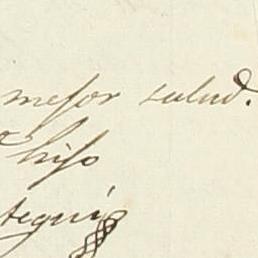 mejor salud.
hijo
tegui